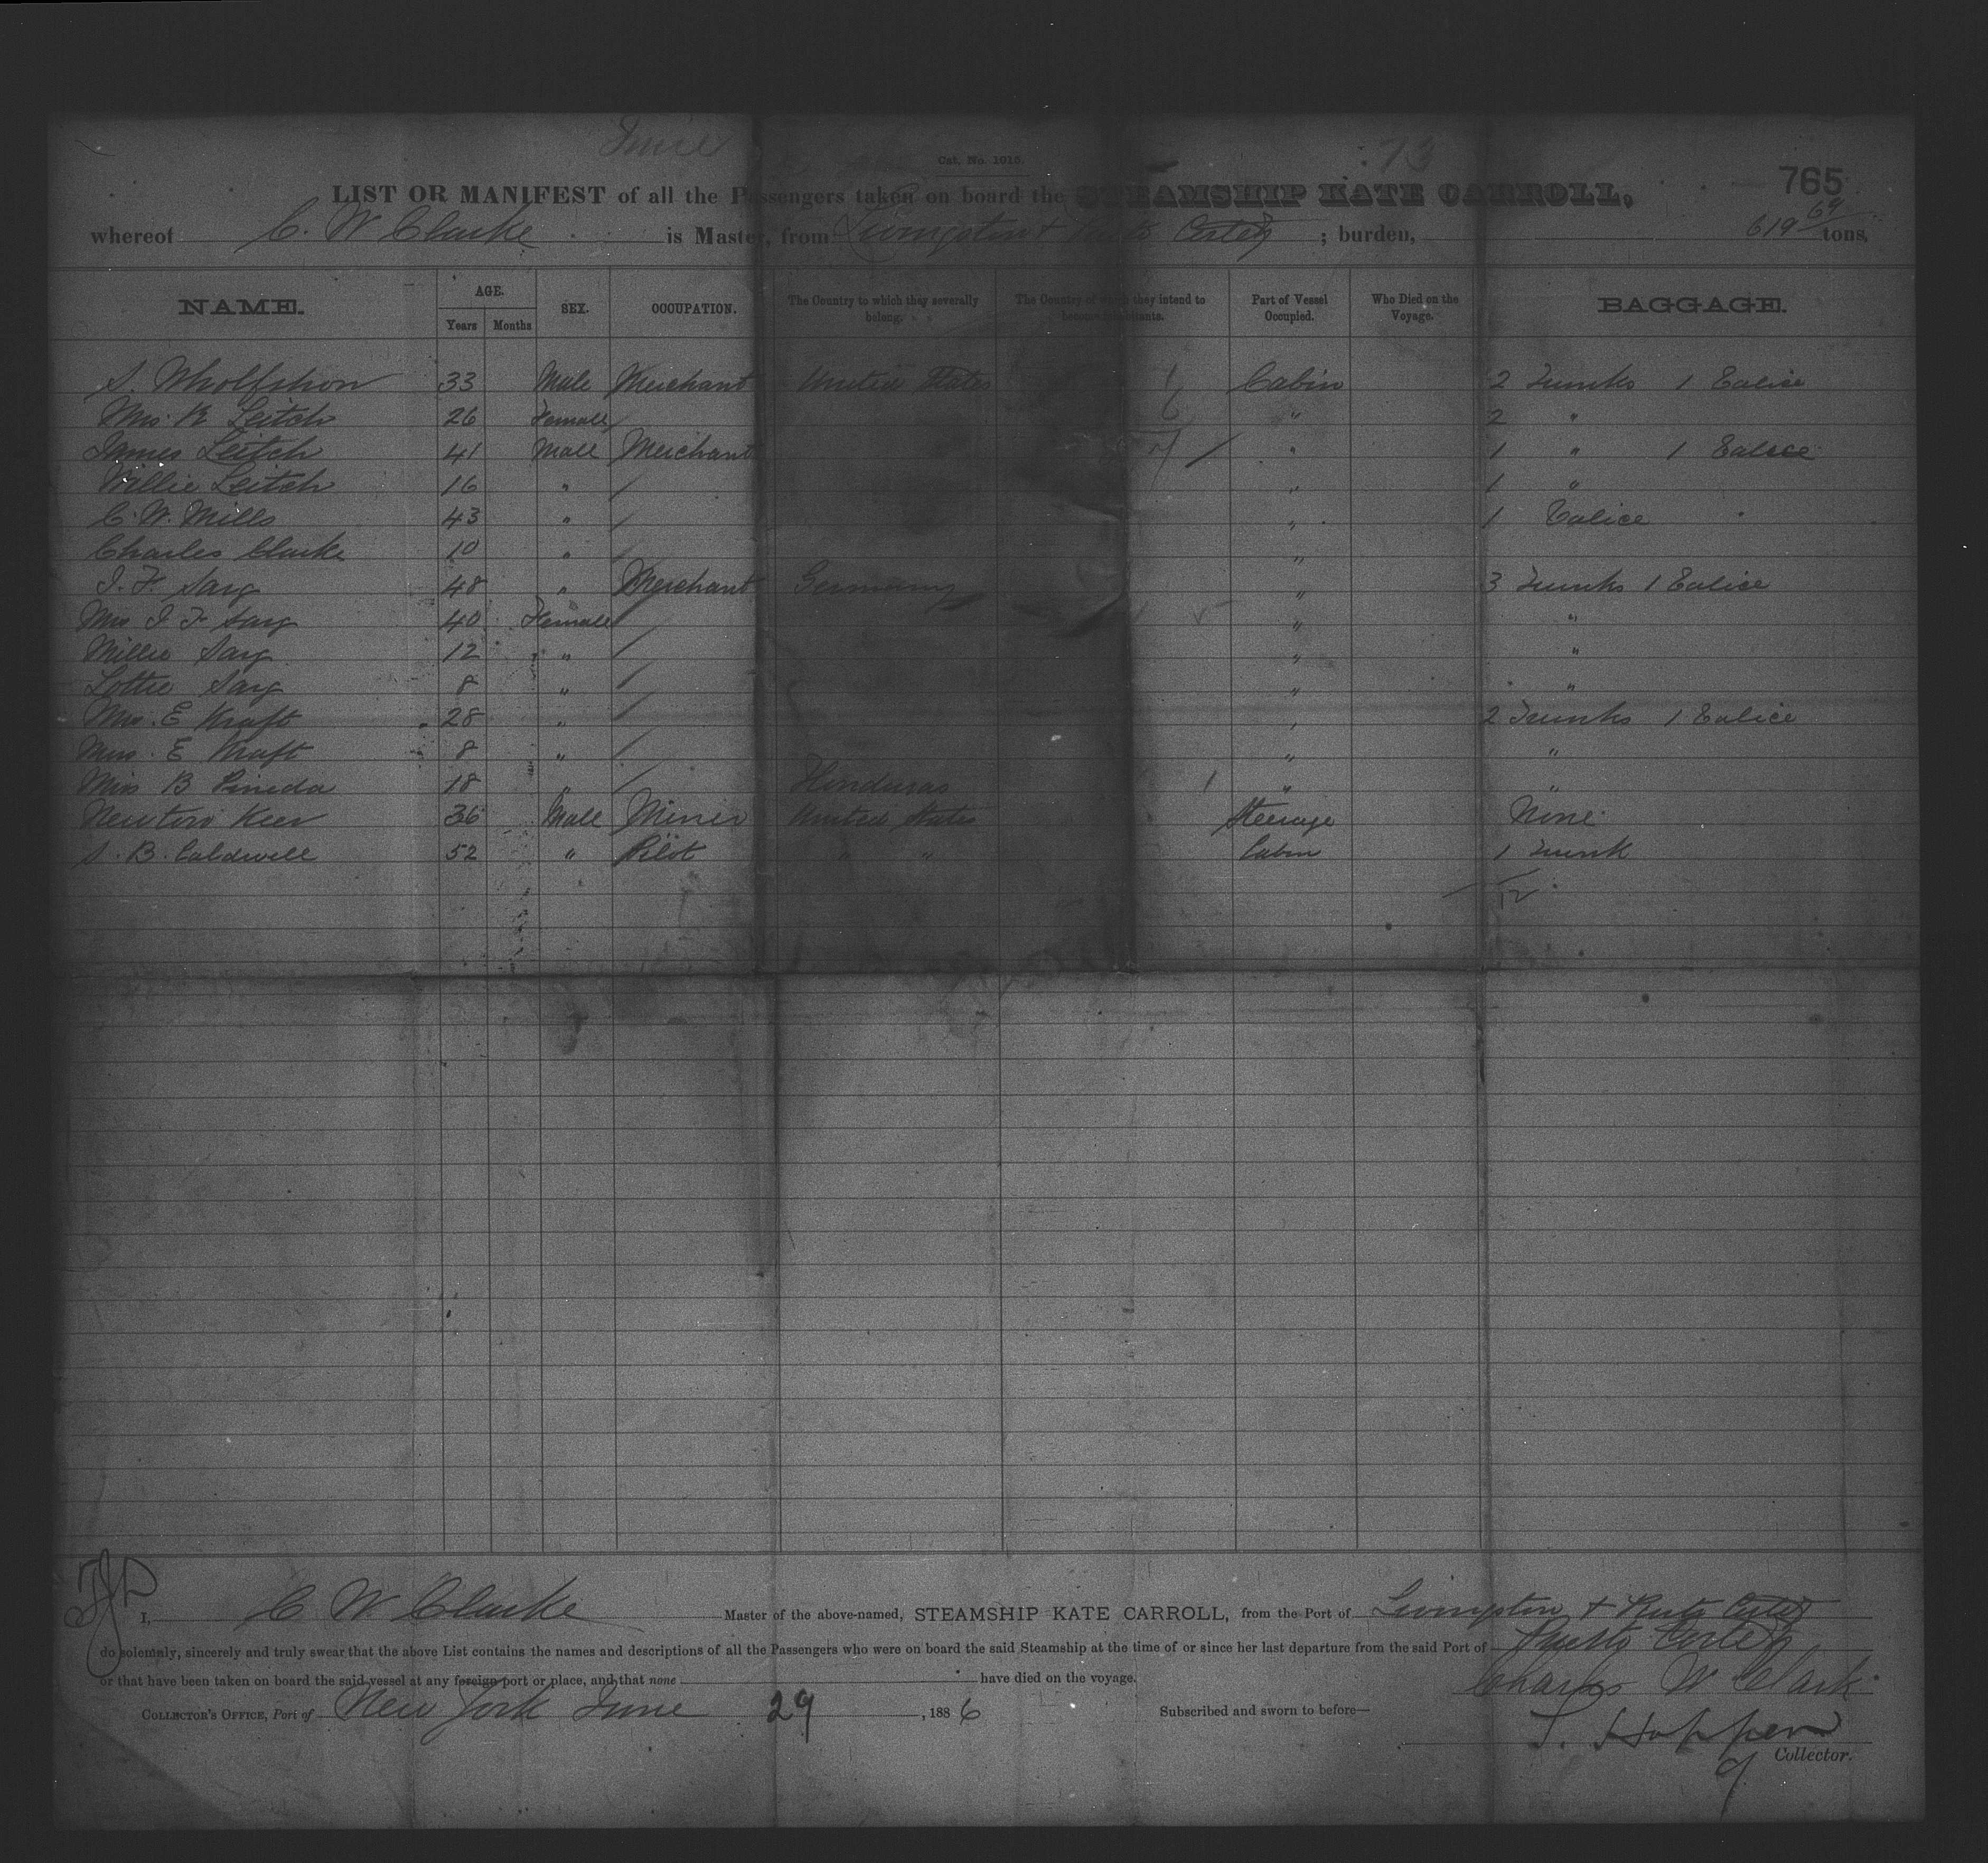 June
Cat. No. 1015.
73
765
LIST OR MANIFEST of all the Passengers taken on board the STEAMSHIP KATE CARROLL,
whereof C. W Clarke is Master, from Livingston + Puerto Cortez ; burden, 619 64 tons,
NAME. AGE. Years Months SEX. OCCUPATION. The Country to which they severally belong. The Country of which they intend to become inhabitants. Part of Vessel Occupied. Who Died on the Voyage. BAGGAGE.
S. Wholfshon 33 Male Merchant United States 1 Cabin 2 Trunks 1 Valice
Mrs. R Leitch 26 Female / 6 " 2 "
James Leitch 41 Male Merchant 7 / " 1 " 1 Valice
Willie Leitch 16 " / " 1 "
C. W. Mills 43 " / " 1 Valice
Charles Clarke 10 " / "
I. F. Sarg 48 " Merchant Germany " 3 Trunks 1 Valice
Mrs I F Sarg 40 Female / " "
Millie Sarg 12 " / " "
Lottie Sarg 8 " / " "
Mrs. E Kraft 28 " / " 2 Trunks 1 Valice
Miss. E Kraft 8 " / " "
Miss B Pineda 18 " / Honduras 1 " "
Newton Keer 36 Male Miner United States Steerage None
S. B. Caldwell 52 " Pilot " " Cabin 1 Trunk
12
I, C W Clarke Master of the above-named, STEAMSHIP KATE CARROLL, from the Port of Livingston + Puerto Cortez
do solemnly, sincerely and truly swear that the above List contains the names and descriptions of all the Passengers who were on board the said Steamship at the time of or since her last departure from the said Port of Puerto Cortez
or that have been taken on board the said vessel at any foreign port or place, and that none have died on the voyage.
Charles W Clark
COLLECTOR'S OFFICE, Port of New York June 29, 1886 Subscribed and sworn to before—
T. Hopper
Collector.